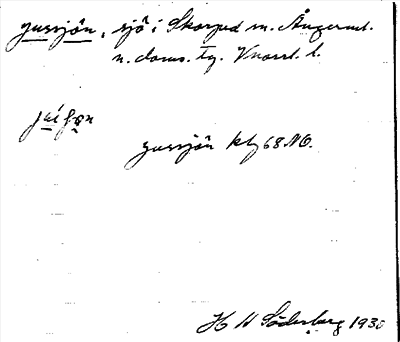 gussjön, sjö i Skorped sn. Ångerml.
n. doms. Tg. Vnorrl. l.
gussjön kbg 68 NO.
H W Söderberg 1930